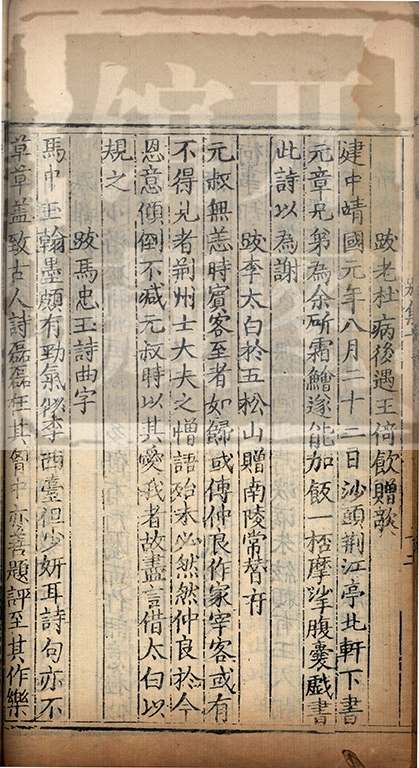 跋老杜病後遇王倚飲贈歌
建中靖國元年八月二十二日沙頭荆江亭北軒下書
元章兄弟為余斫霜鱠遂能加飯一桮摩挲腹囊戲書
此詩以為謝
跋李太白於五松山贈南陵常賛府
元叔無恙時賓客至者如歸或傳仲良作家宰客或有
不得見者荆州士大夫之憎語殆未必然然仲良於今
恩意傾倒不减元叔時以其愛我者故盡言借太白以
規之
跋馬忠玉詩曲字
馬中玉翰墨頗有勁氣似李西臺但少妍耳詩句亦不
草草蓋致古人詩磊磊在其胷中亦善題評至其作樂